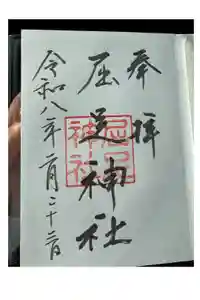 奉拝
屈足神社
令和八年二月二十二日
屈足
神社